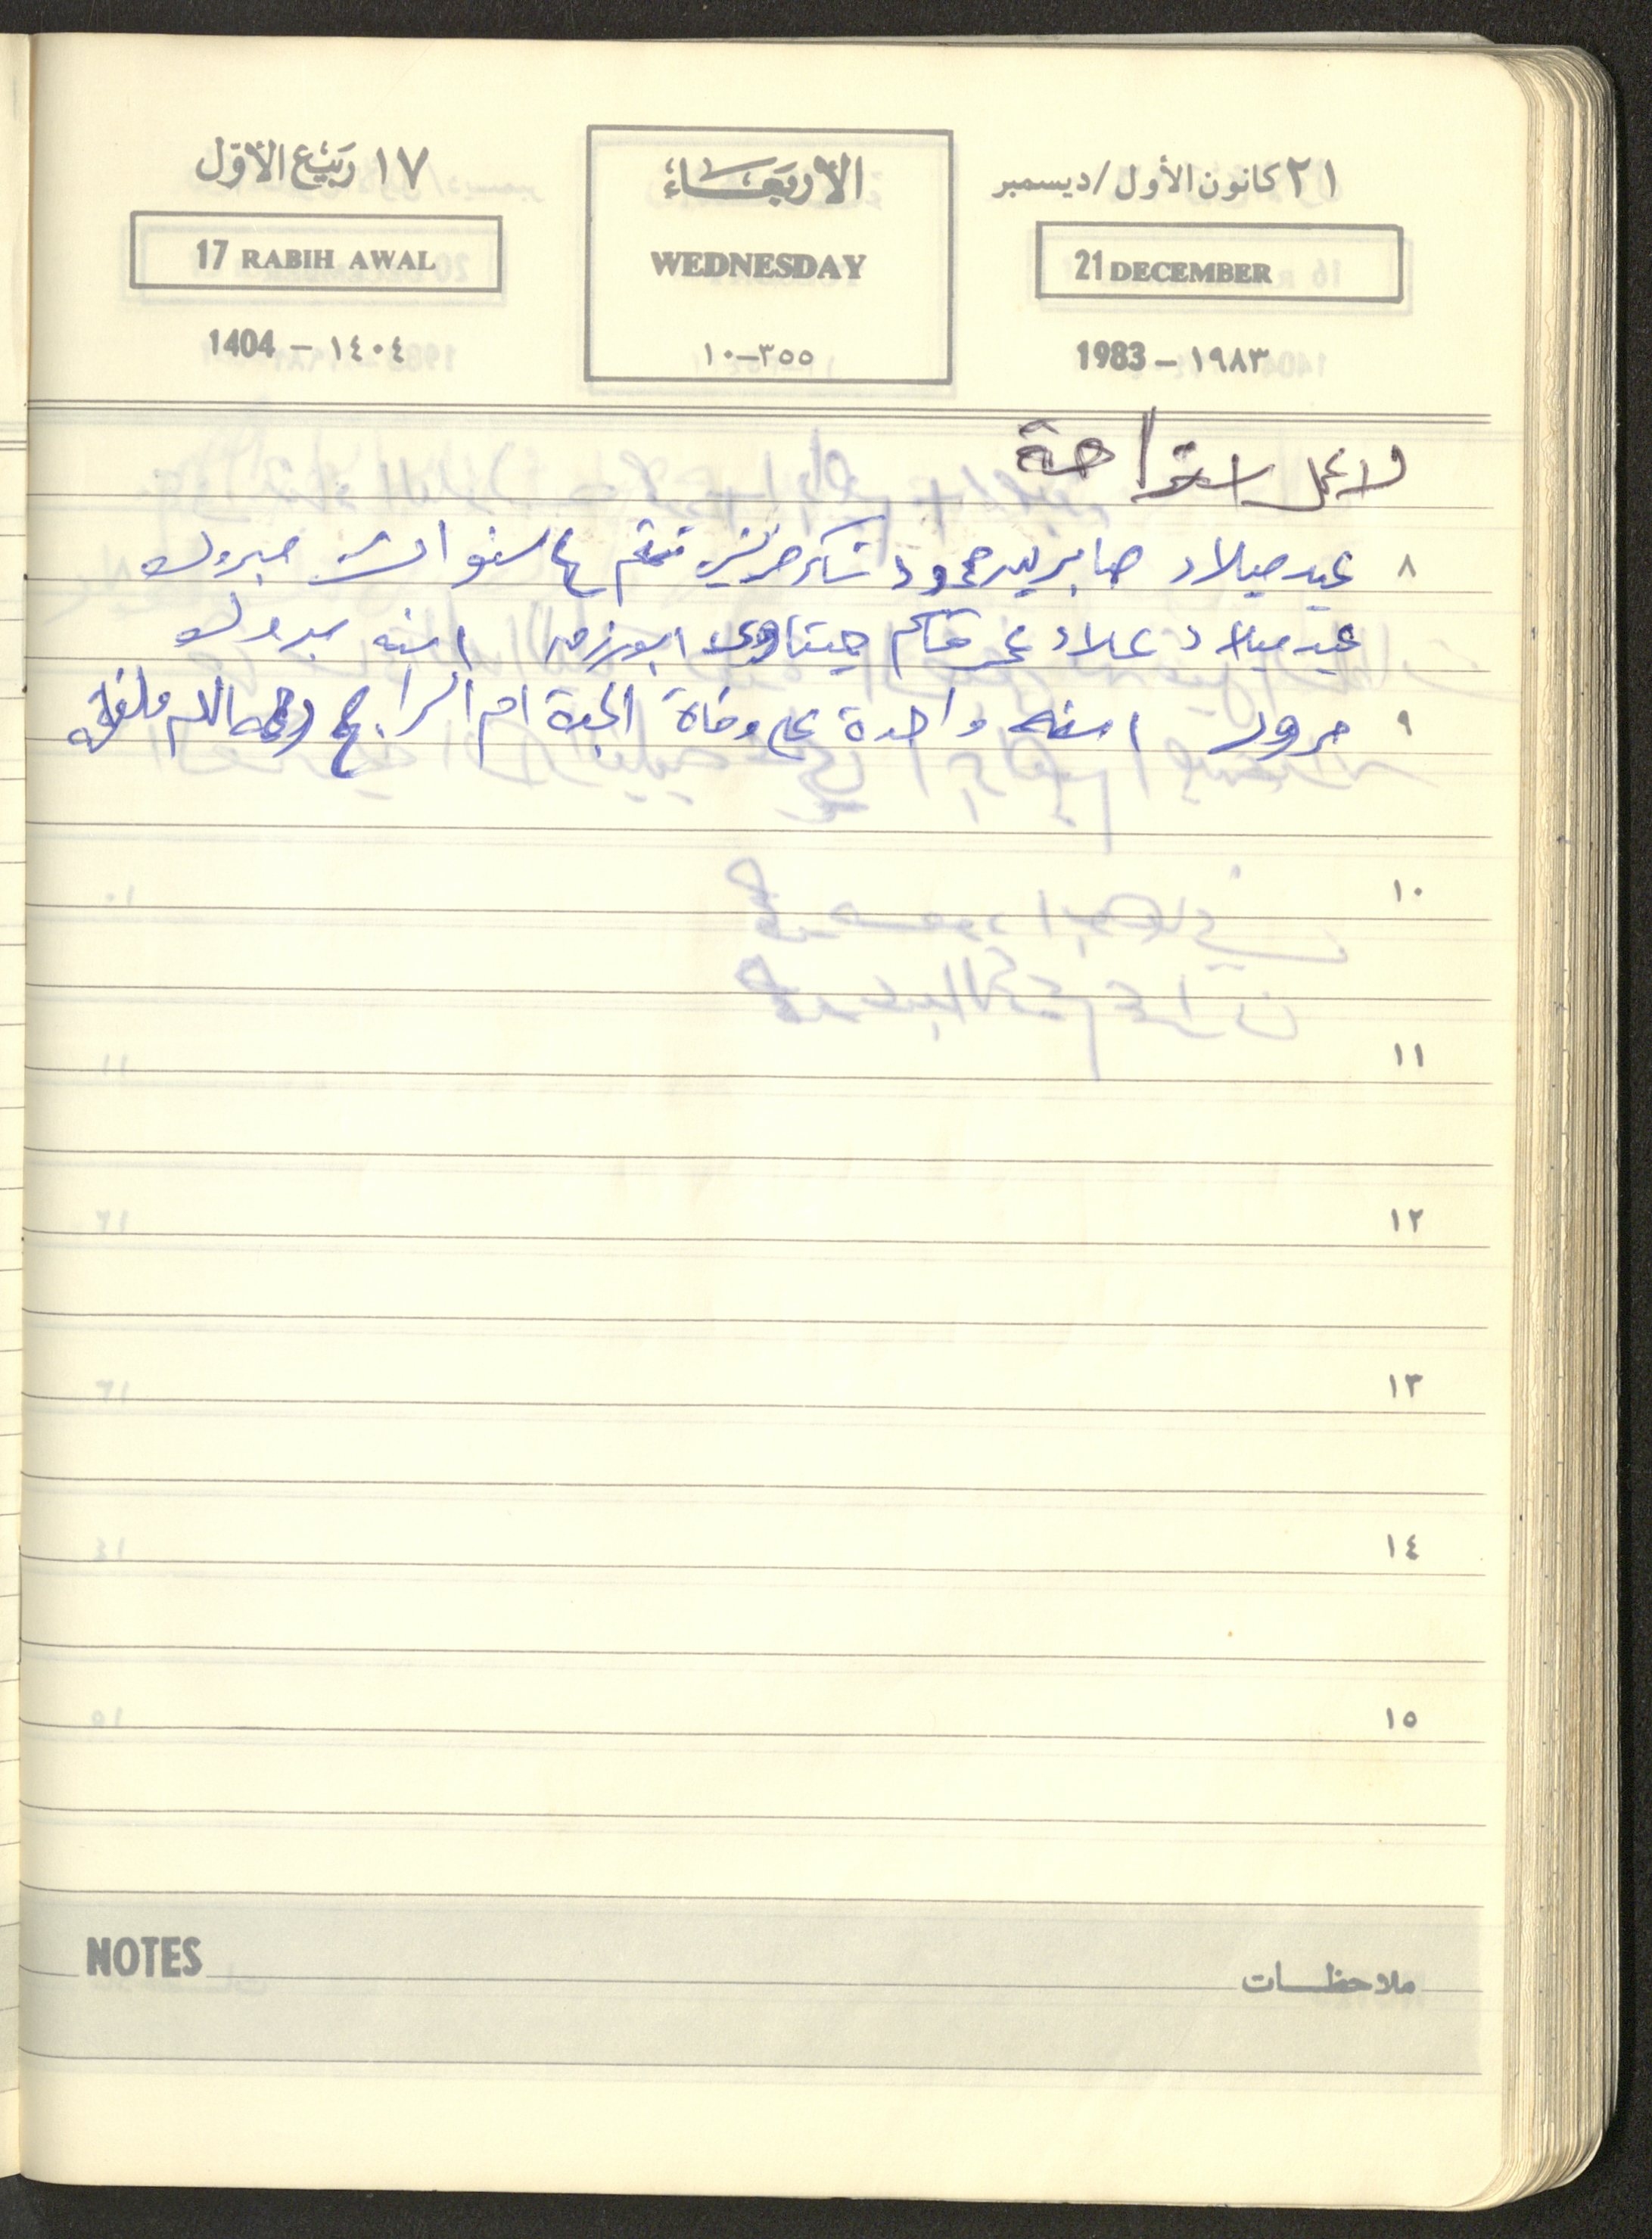 ٢١ كانون الأول/ديسمبر
21 DECEMBER
1983 – ١٩٨٣
الأربعاء
WEDNESDAY
٣٥٥–١٠
١٧ ربيع الأول
17 RABIH AWAL
1404 – ١٤٠٤
لا عمل استراحة
٨ عيد ميلاد صابرين محمود شاكر سنوات مبروك
عيد ميلاد علاد عمر ابورزق ١ سنه مبروك
٩ مرور ١ سنه واحدة على وفاة الجدة ام الرابح رحمها الله
١٠
١١
١٢
١٣
١٤
١٥
NOTES ملاحظات